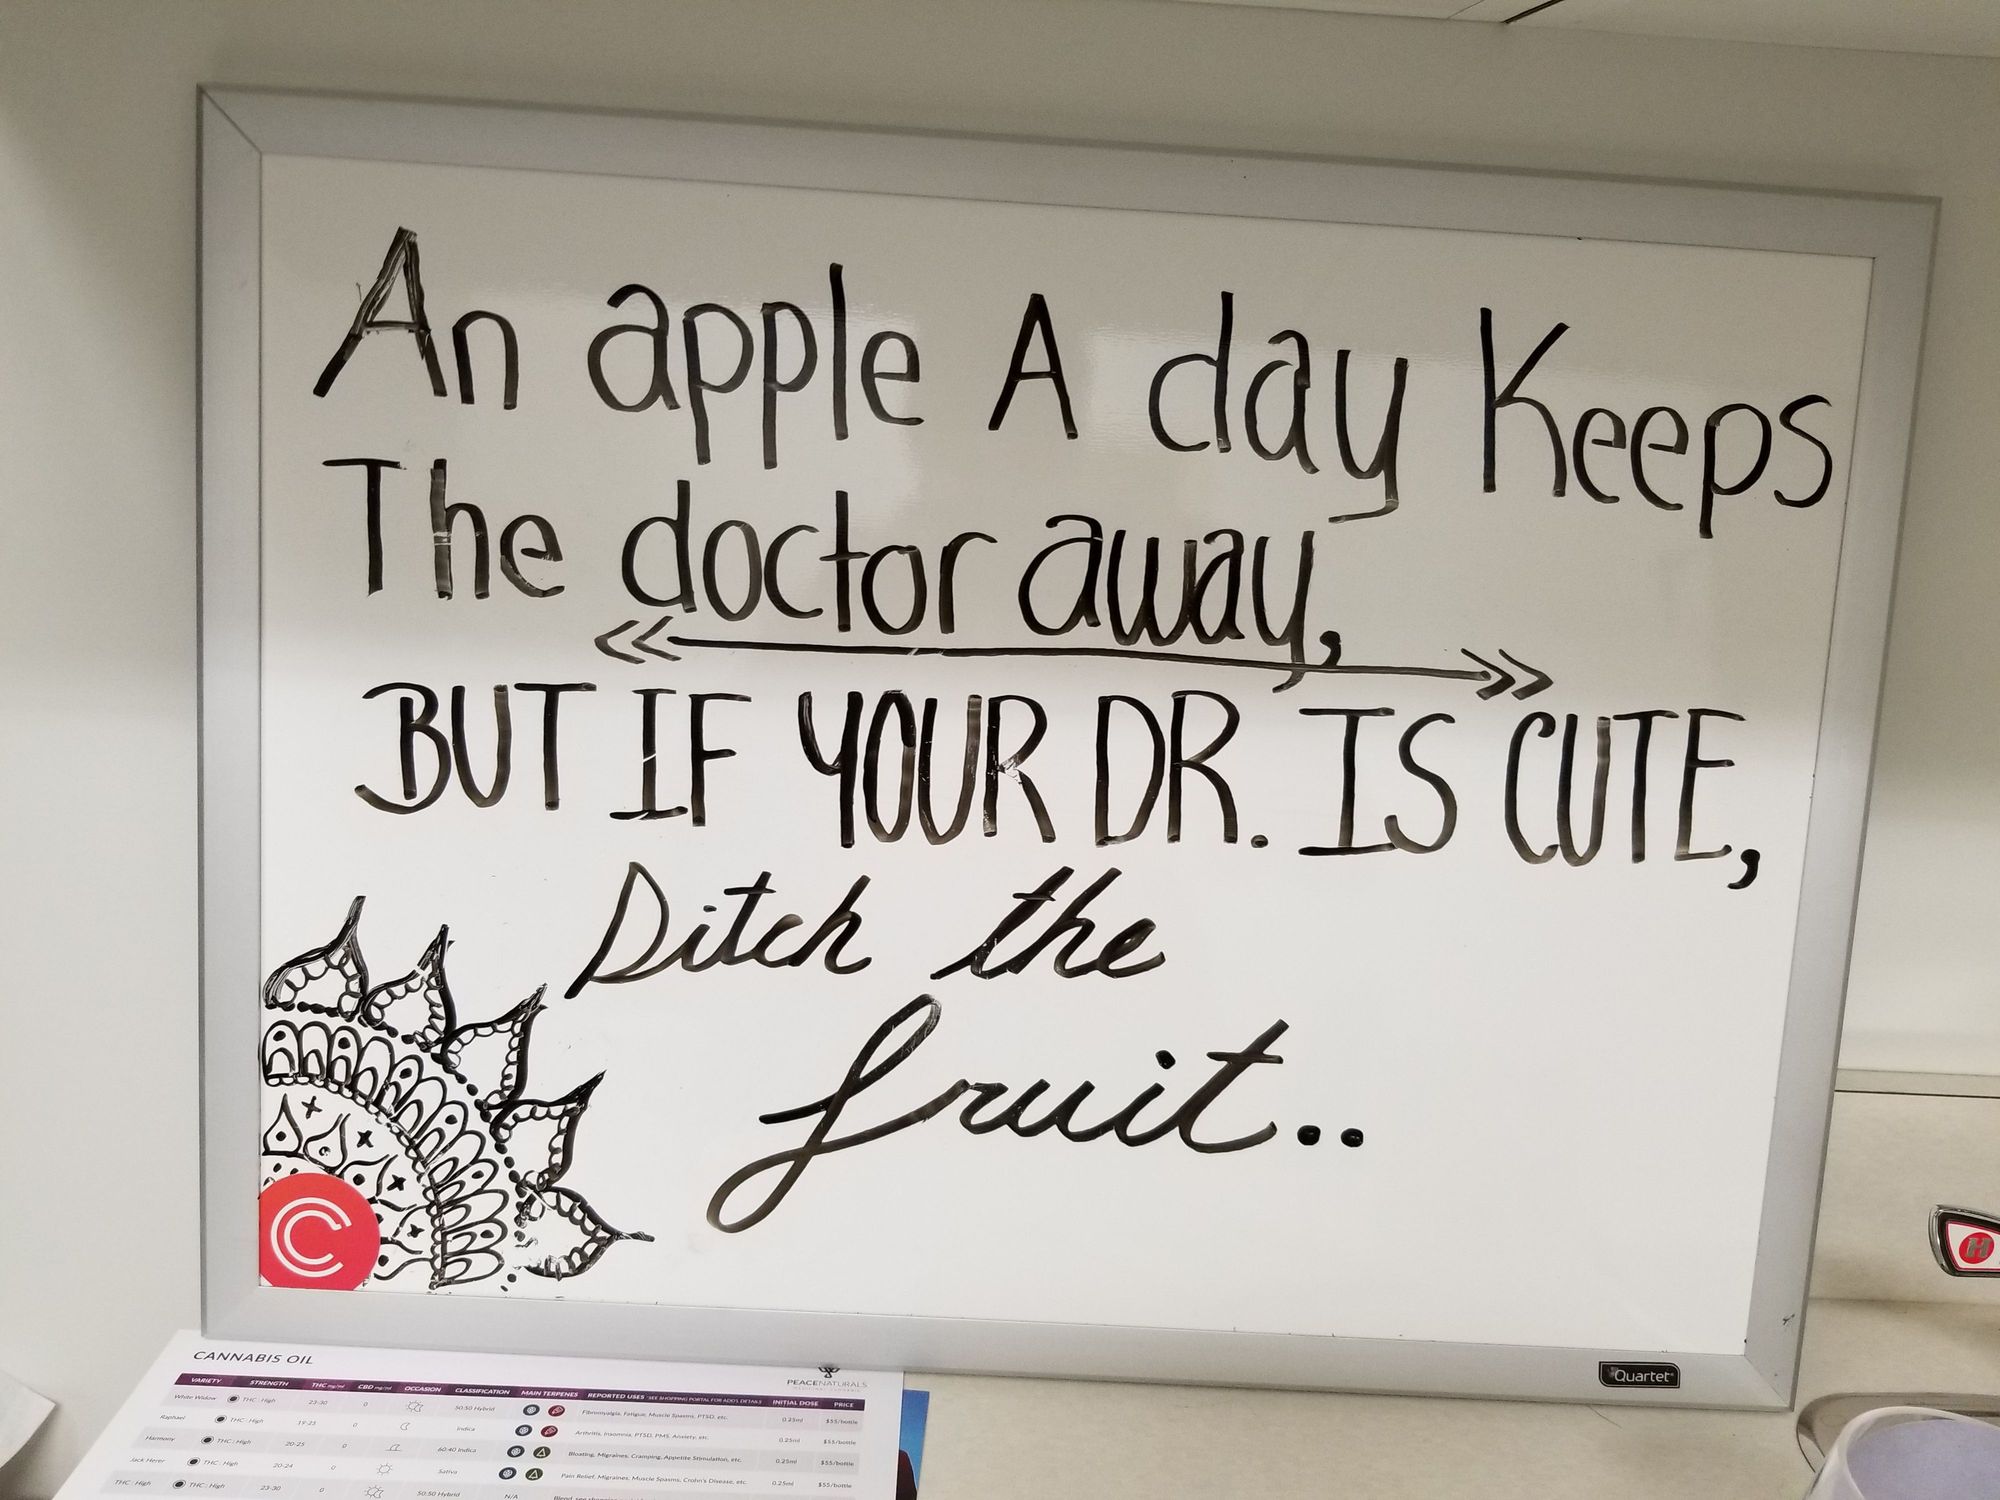 An apple A day Keeps
The doctor away,
BUT IF YOUR DR. IS CUTE,
Ditch the
fruit..
C
H
Quartet
CANNABIS OIL
PEACENATURALS
VARIETY STRENGTH THC mg/ml CBD mg/ml OCCASION CLASSIFICATION MAIN TERPENES REPORTED USES *SEE SHOPPING PORTAL FOR ADD'L DETAILS INITIAL DOSE PRICE
White Widow THC: High 23-30 0 50:50 Hybrid Fibromyalgia, Fatigue, Muscle Spasms, PTSD, etc. 0.25ml $55/bottle
Raphael THC: High 19-25 0 Indica Arthritis, Insomnia, PTSD, PMS, Anxiety, etc. 0.25ml $55/bottle
Harmony THC: High 20-25 0 60:40 Indica Bloating, Migraines, Cramping, Appetite Stimulation, etc. 0.25ml $55/bottle
Jack Herer THC: High 20-24 0 Sativa Pain Relief, Migraines, Muscle Spasms, Crohn's Disease, etc. 0.25ml $55/bottle
THC: High THC: High 23-30 0 50:50 Hybrid N/A Blend, see